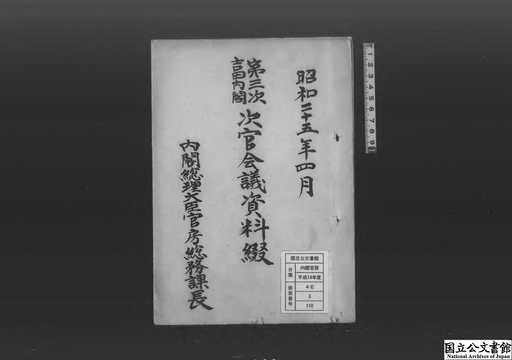 昭和二十五年四月
第三次
吉田内閣
次官会議資料綴
内閣総理大臣官房総務課長
国立公文書館
分類
内閣官房
平成14年度
4E
3
排架番号
1 2 3 4 5 6 7 8 9
国立公文書館
National Archives of Japan